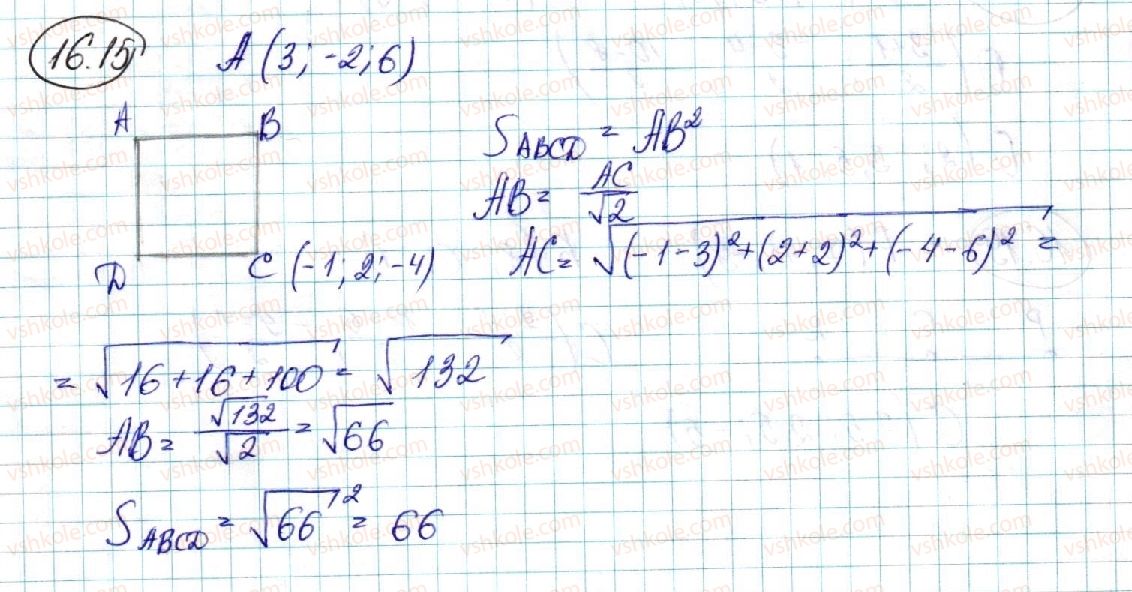 16.15 A (3; -2; 6)
A B
S_ABCD = AB²
AB = AC/√2
D C (-1; 2; -4) AC = √((-1-3)²+(2+2)²+(-4-6)²) =
= √(16+16+100) = √132
AB = √132/√2 = √66
S_ABCD = √66² = 66
vshkole.com